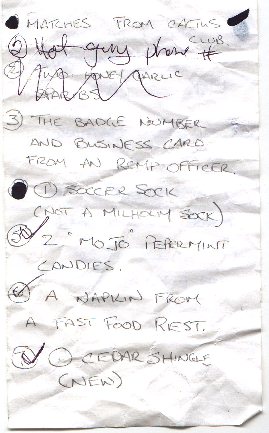 MATCHES FROM CACTUS
CLUB.
2 Hot guy phone #
2 TWO HONEY GARLIC
3 THE BADGE NUMBER
AND BUSINESS CARD
FROM AN RCMP OFFICER.
① SOCCER SOCK
(NOT A MILHOLM SOCK)
2 "MOJO" PEPERMINT
CANDIES.
A NAPKIN FROM
A FAST FOOD REST.
① CEDAR SHINGLE
(NEW)